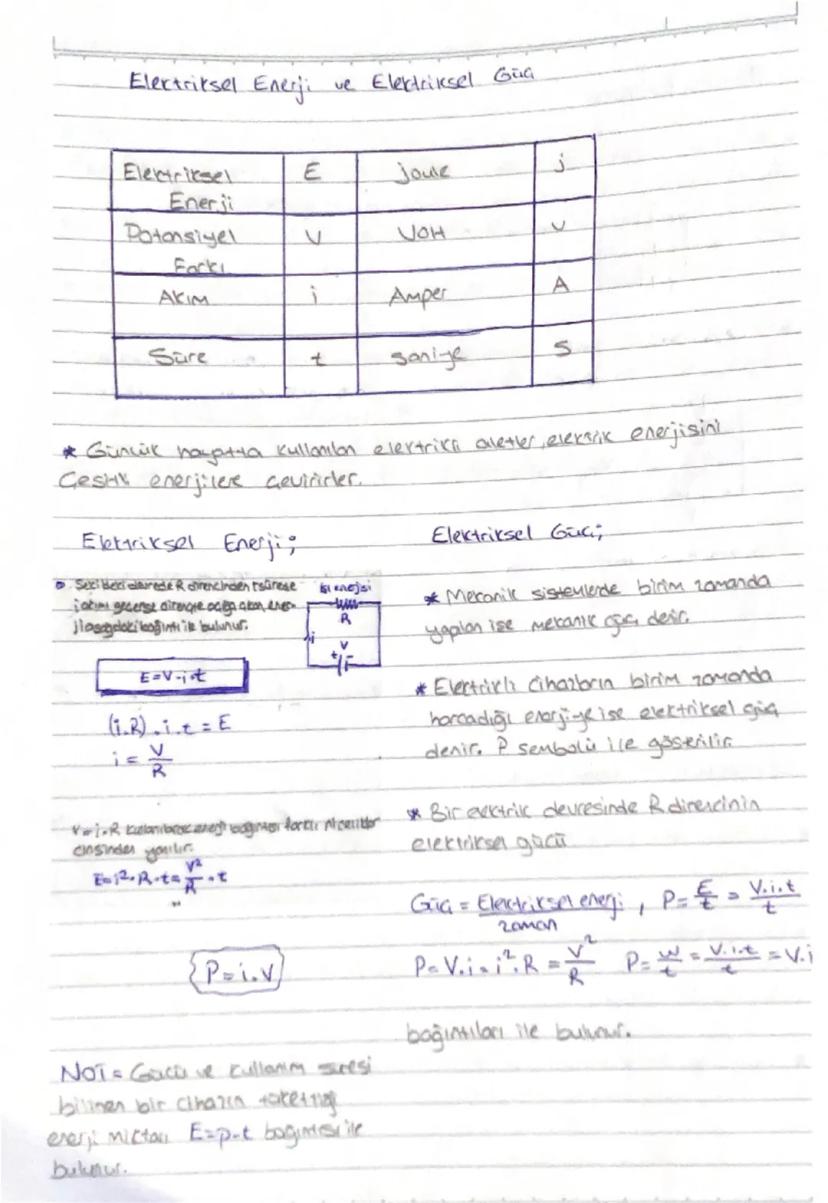 Elektriksel Enerji ve Elektriksel Güç
Elektriksel Enerji E joule j
Potansiyel Farkı V Volt v
Akım i Amper A
Süre t saniye s
* Günlük hayatta kullanılan elektrikli aletler, elektrik enerjisini
Çeşitli enerjilere çevirirler.
Elektriksel Enerji;
Şekildeki devrede R direncinden t sürese
i akımı geçerse dirençte açığa çıkan ener
ji aşağıdaki bağıntı ile bulunur.
ısı enerjisi
R
i
V
+ -
E=V.i.t
(i.R).i.t = E
i = V/R
V=i.R kullanılarak enerji bağıntısı farklı nicelikler
cinsinden yazılır.
E=i².R.t = V²/R .t
P=i.V
NOT= Gücü ve kullanım süresi
bilinen bir cihazın tükettiği
enerji miktarı E=p.t bağıntısı ile
bulunur.
Elektriksel Güç;
* Mekanik sistemlerde birim zamanda
yapılan işe mekanik güç denir.
* Elektrikli cihazların birim zamanda
harcadığı enerjiye ise elektriksel güç
denir. P sembolü ile gösterilir.
* Bir elektrik devresinde R direncinin
elektriksel gücü
Güç = Elektriksel enerji / zaman , P = E/t = V.i.t/t
P=V.i = i².R = V²/R P = W/t = V.i.t/t = V.i
bağıntıları ile bulunur.